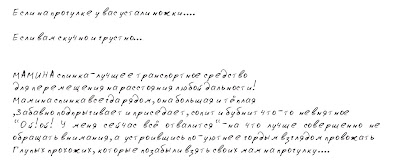 Если на прогулке у вас устали ножки....
Если вам скучно и грустно...
МАМИНА спинка-лучшее транспортное средство
для перемещения на расстояния любой дальности!
Мамина спинка всегда рядом, она большая и тёплая
,Забавно подпрыгивает и приседает, сопит и бубнит что-то невнятное
"Ой!Ой! У меня сейчас всё отвалится"-на что лучше совершенно не
обращать внимания, а устроившись по-уютнее гордым взглядом провожать
Глупых прохожих, которые позабыли взять своих мам на прогулку....